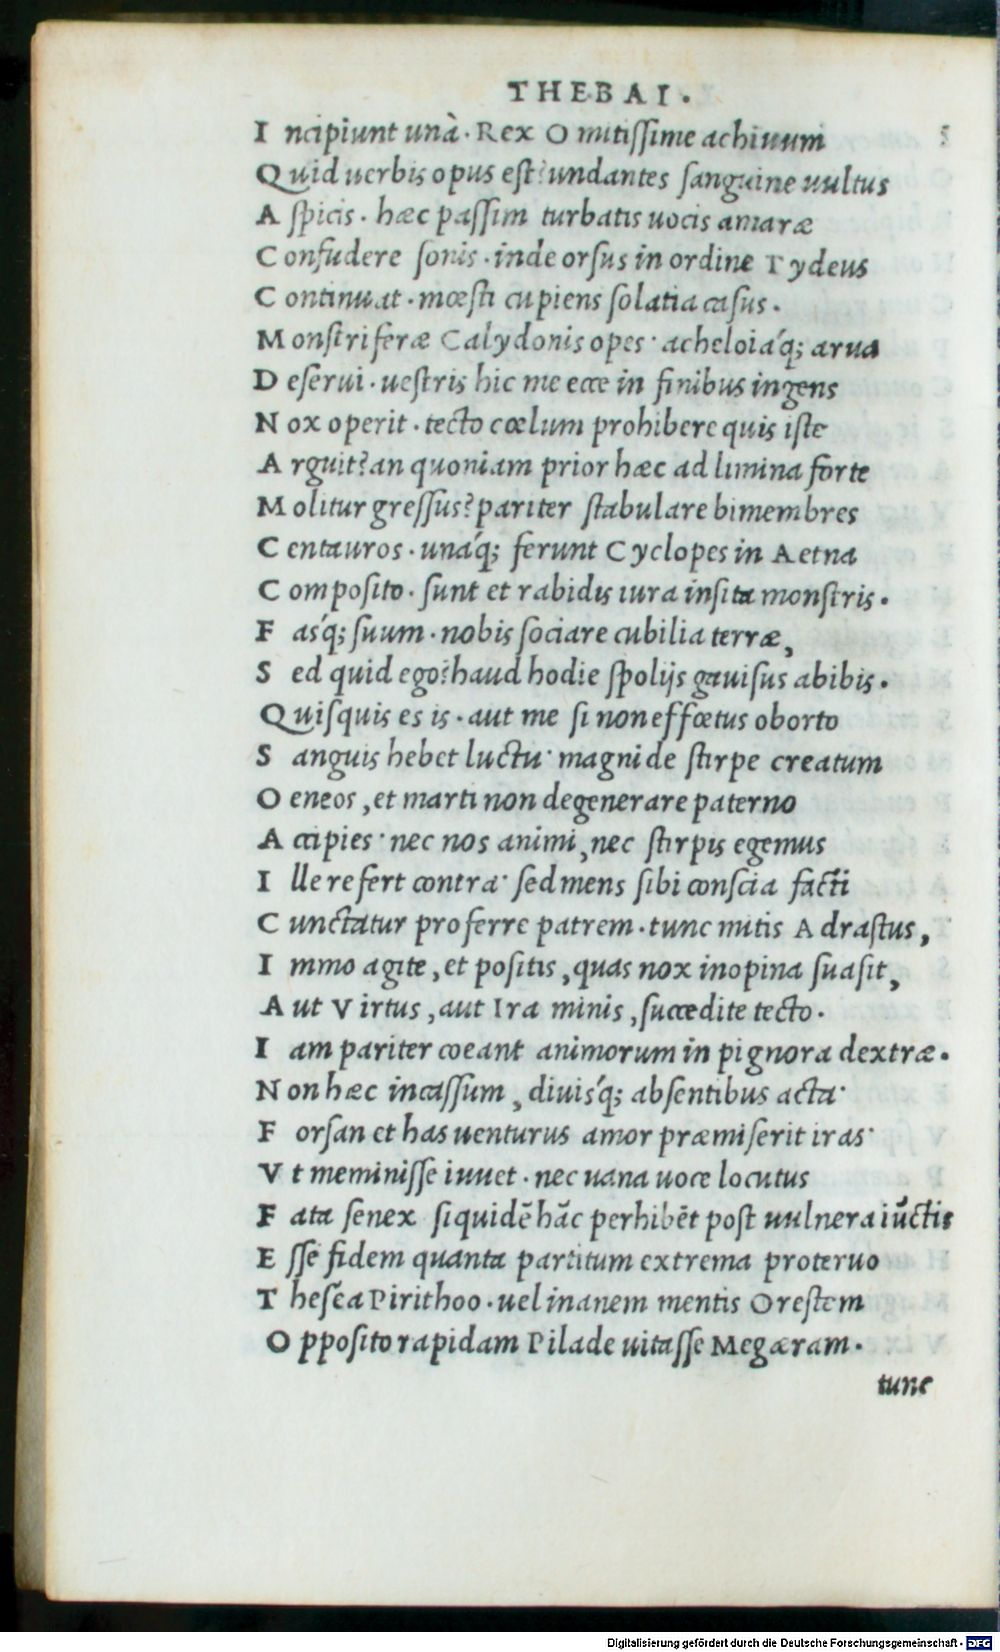 THEBAI.
I ncipiunt unà. Rex O mitissime achiuum
Quid uerbis opus est? undantes sanguine uultus
A spicis. hæc passim turbatis uocis amaræ
C onfudere sonis. inde orsus in ordine Tydeus
C ontinuat. mœsti cupiens solatia casus.
M onstriferæ Calydonis opes· acheloiaq́; arua
D eserui. uestris hic me ecce in finibus ingens
N ox operit. tecto cœlum prohibere quis iste
A rguit? an quoniam prior hæc ad limina forte
M olitur gressus? pariter stabulare bimembres
C entauros. unaq́; ferunt Cyclopes in Aetna
C omposito. sunt et rabidis iura insita monstris.
F asq́; suum. nobis sociare cubilia terræ,
S ed quid ego? haud hodie spolijs gauisus abibis.
Quisquis es is. aut me si non effœtus oborto
S anguis hebet luctu· magni de stirpe creatum
O eneos, et marti non degenerare paterno
A ccipies· nec nos animi, nec stirpis egemus
I lle refert contra· sed mens sibi conscia facti
C unctatur proferre patrem. tunc mitis Adrastus,
I mmo agite, et positis, quas nox inopina suasit,
A ut Virtus, aut Ira minis, succedite tecto.
I am pariter coeant animorum in pignora dextræ.
N on hæc incassum, diuisq́; absentibus acta·
F orsan et has uenturus amor præmiserit iras·
V t meminisse iuuet. nec uana uoce locutus
F ata senex siquidē hāc perhibēt post uulnera iūctis
E sse fidem quanta partitum extrema proteruo
T hesea Pirithoo. uel inanem mentis Orestem
O pposito rapidam Pilade uitasse Megæram.
tunc
Digitalisierung gefördert durch die Deutsche Forschungsgemeinschaft - DFG